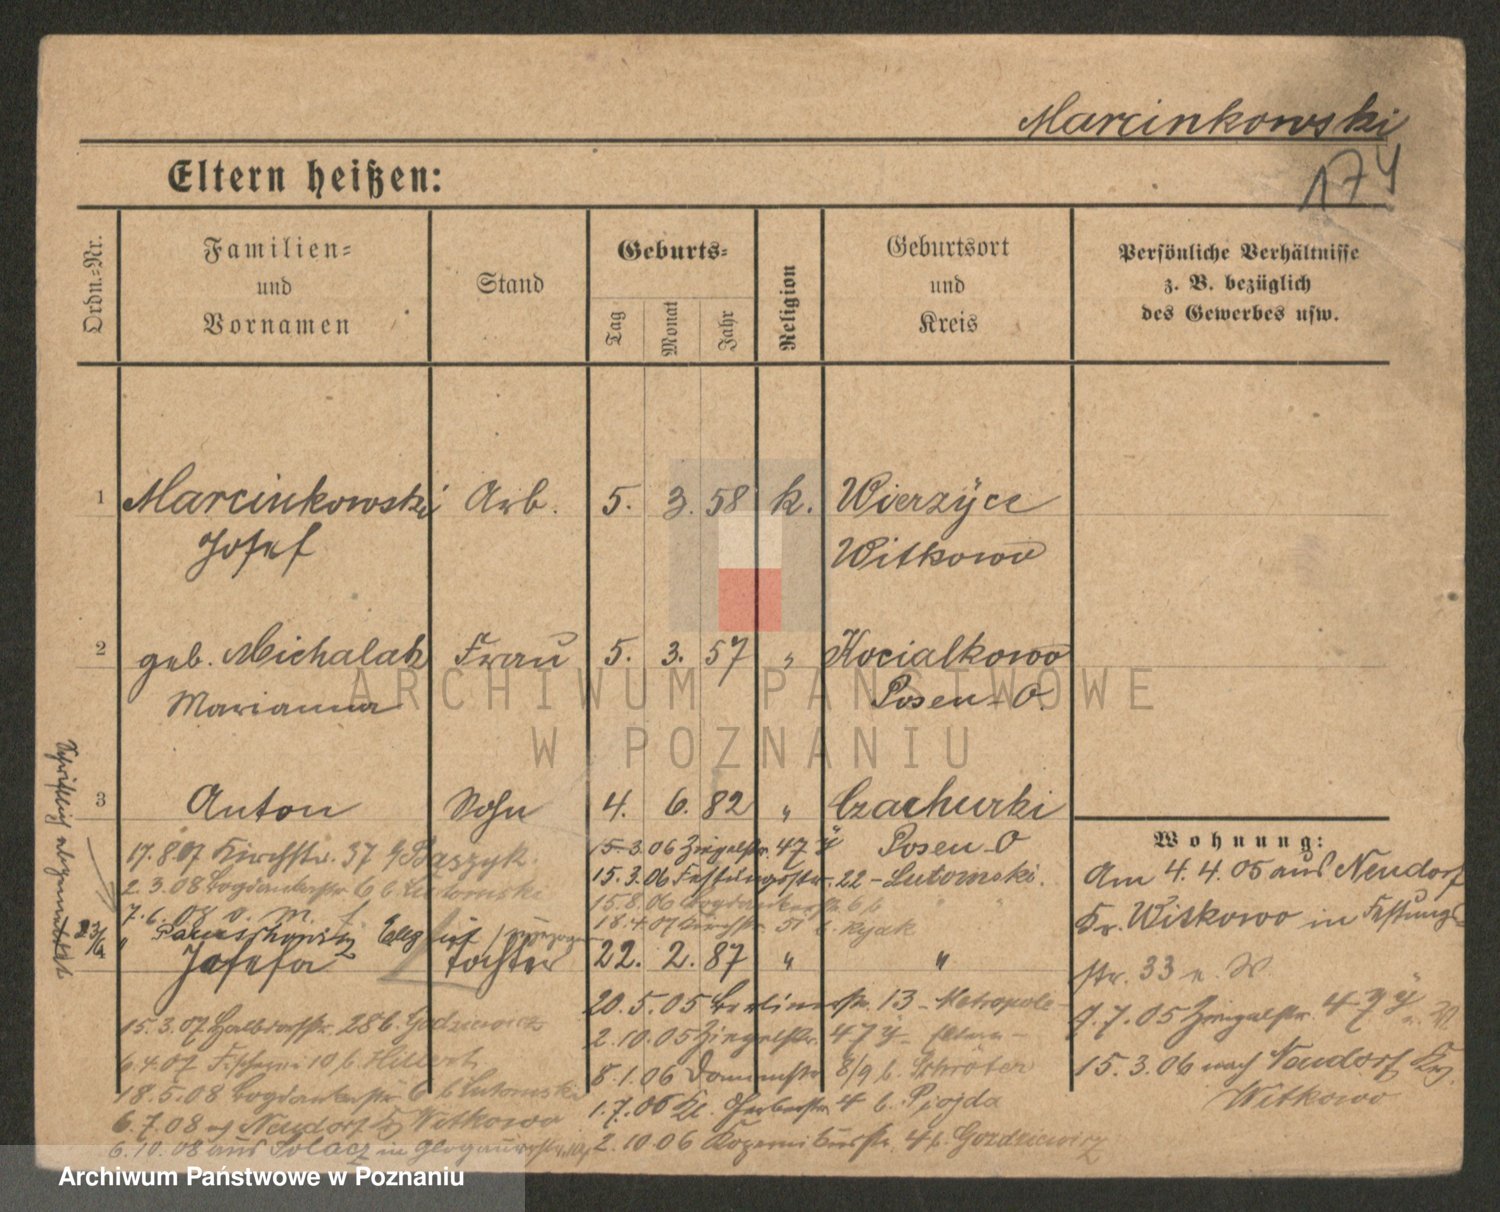 Marcinkowski
174
Eltern heißen:
Ordn.=Nr.
Familien=
und
Vornamen
Stand
Geburts=
Tag
Monat
Jahr
Religion
Geburtsort
und
Kreis
Persönliche Verhältnisse
z. B. bezüglich
des Gewerbes usw.
1 Marcinkowski Arb. 5. 3. 58 k. Wierzyce
Josef Witkowo
2 geb. Michalak Frau 5. 3. 57 " Kocialkowo
Marianna Posen-O.
ARCHIWUM PAŃSTWOWE
W POZNANIU
3 Anton Sohn 4. 6. 82 " Czachurki
Posen-O
17.8.07 Kirchstr. 37
15.3.06 Ziegelstr. 47
2.3.08 Bogdankastr. 6 b. Lutomski
15.3.06 Festungsstr. 22 - Lutomski.
15.8.06 Bogdankastr. 6 b " "
7.6.08
18.4.07 Kirchstr. 51 b. Kyak
Josefa Tochter 22. 2. 87 " "
20.5.05 Berlinerstr. 13 - Metropole
15.3.07 Halbdorfstr. 28 b. Godziewicz
2.10.05 Ziegelstr. 47 Eltern -
6.4.07 Fischerei 10 b.
8.1.06 Dominstr. 8/9 b. Schröter
18.5.08 Bogdankastr. 6 b Lutomski
1.7.06 Kl. Gerberstr. 4 b. Pjojda
6.7.08 Neudorf Witkowo
6.10.08 aus Solacz in Glogauerstr.
2.10.06 4 b. Gozdziewicz
Wohnung:
Am 4.4.05 aus Neudorf
Kr. Witkowo in Festungs-
str. 33
7.7.05 Ziegelstr. 47
15.3.06 nach Neudorf Kr.
Witkowo
Schriftlich abgemeldet
Archiwum Państwowe w Poznaniu